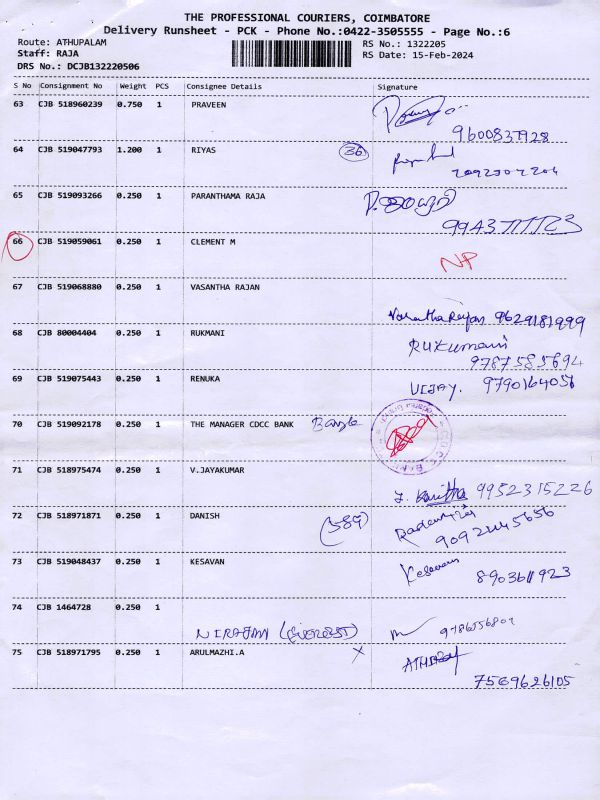 THE PROFESSIONAL COURIERS, COIMBATORE
Delivery Runsheet - PCK - Phone No.:0422-3505555 - Page No.:6
Route: ATHUPALAM RS No.: 1322205
Staff: RAJA RS Date: 15-Feb-2024
DRS No.: DCJB132220506
S No Consignment No Weight PCS Consignee Details Signature
63 CJB 518960239 0.750 1 PRAVEEN
64 CJB 519047793 1.200 1 RIYAS 36
65 CJB 519093266 0.250 1 PARANTHAMA RAJA
66 CJB 519059061 0.250 1 CLEMENT M NP
67 CJB 519068880 0.250 1 VASANTHA RAJAN
Vasantha Rajan 9629181999
68 CJB 80004404 0.250 1 RUKMANI Rukumani
9787585694
69 CJB 519075443 0.250 1 RENUKA VIJAY. 9790164056
70 CJB 519092178 0.250 1 THE MANAGER CDCC BANK
71 CJB 518975474 0.250 1 V.JAYAKUMAR
9952315226
72 CJB 518971871 0.250 1 DANISH (589)
73 CJB 519048437 0.250 1 KESAVAN Kesavan
74 CJB 1464728 0.250 1
NIRAJAN
75 CJB 518971795 0.250 1 ARULMAZHI.A X
7569626105